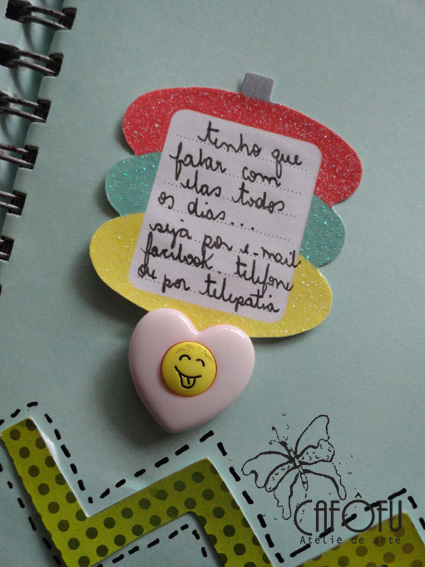 tenho que
falar com
elas todos
os dias...
seja por e-mail
facebook telefone
ou por telepatia
CAFÔFU
Ateliê de arte